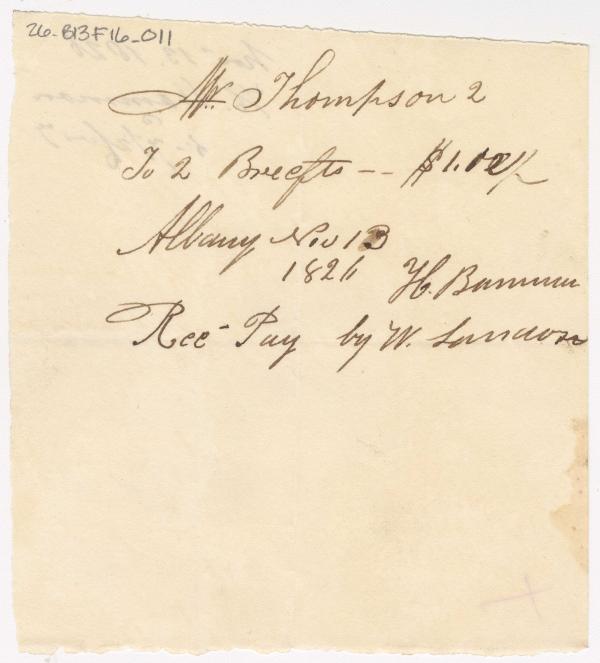 26-B13F16-011
Mr. Thompson 2
To 2 Breefts -- $1.00
Albany Nov 13
1826 H.
Rec- Pay by W. Landon